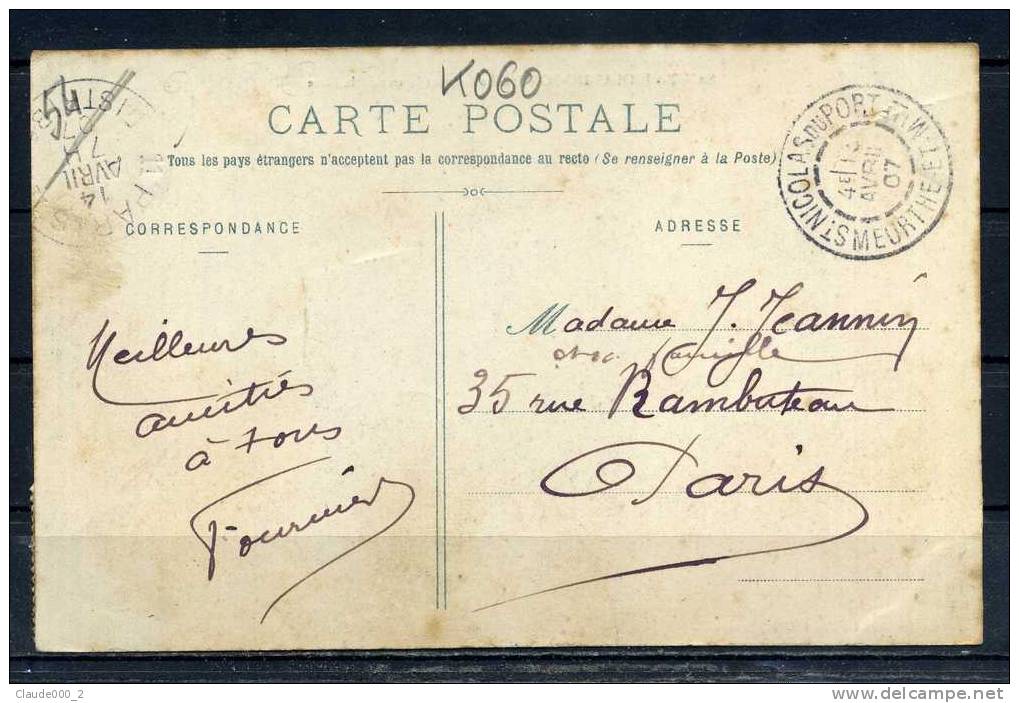 K060
54
CARTE POSTALE
Tous les pays étrangers n'acceptent pas la correspondance au recto (Se renseigner à la Poste)
CORRESPONDANCE
ADRESSE
11 PARIS
14
AVRIL
07
DISTRIB
ST NICOLAS DU PORT
MEURTHE ET M LLE
AVRIL
07
Meilleures
amitiés
à tous
Fournier
Madame J. Jeannin
famille
35 rue Rambuteau
Paris
Claude000_2
www.delcampe.net